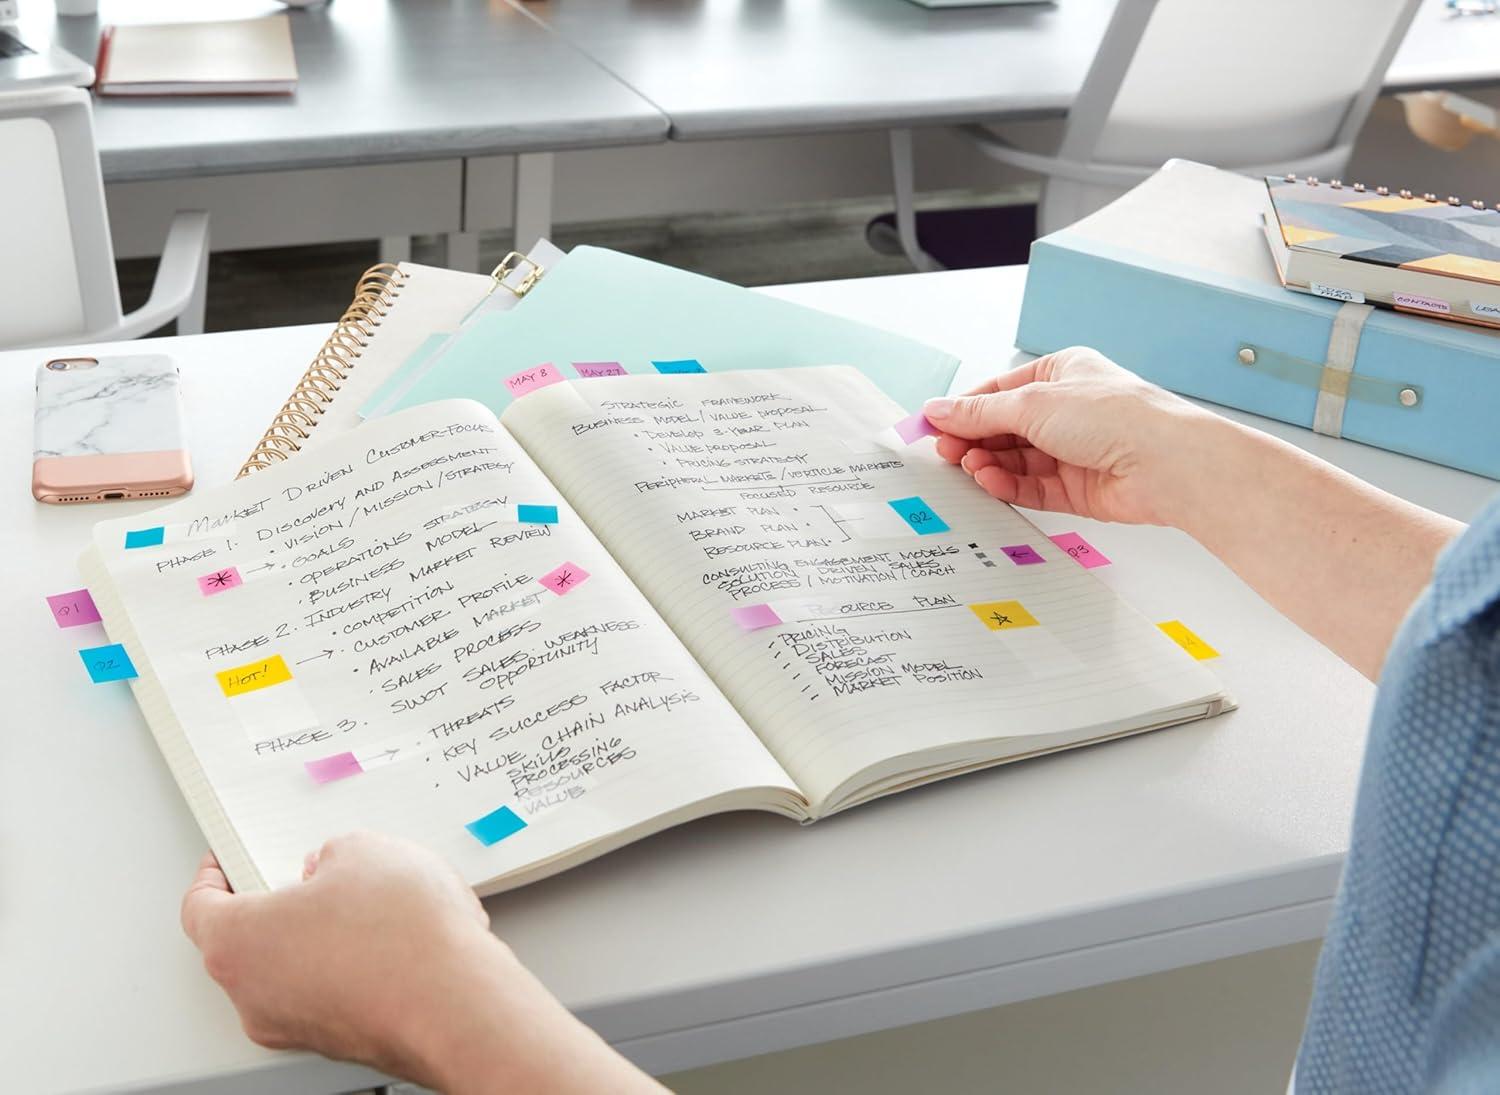 MAY 8
MAY 27
MARKET DRIVEN CUSTOMER-FOCUS
PHASE 1: DISCOVERY AND ASSESSMENT
• VISION / MISSION / STRATEGY
* → • GOALS
• OPERATIONS STRATEGY
• BUSINESS MODEL
PHASE 2. INDUSTRY MARKET REVIEW
• COMPETITION
*
HOT! → • CUSTOMER PROFILE
• AVAILABLE MARKET
• SALES PROCESS
PHASE 3. SWOT SALES: WEAKNESS
OPPORTUNITY
→ • THREATS
• KEY SUCCESS FACTOR
• VALUE CHAIN ANALYSIS
SKILLS
PROCESSING
RESOURCES
VALUE
Q1
Q2
STRATEGIC FRAMEWORK
BUSINESS MODEL / VALUE PROPOSAL
• DEVELOP 3-YEAR PLAN
• VALUE PROPOSAL
• PRICING STRATEGY
PERIPHERAL MARKETS / VERTICLE MARKETS
FOCUSED RESOURCE
MARKET PLAN •
BRAND PLAN •
RESOURCE PLAN •
Q2
CONSULTING ENGAGEMENT MODELS
SOLUTION DRIVEN SALES
PROCESS / MOTIVATION / COACH
←
Q3
RESOURCE PLAN
- PRICING
- DISTRIBUTION
- SALES
- FORECAST
- MISSION MODEL
- MARKET POSITION
IDEA
MAP
CONTACTS